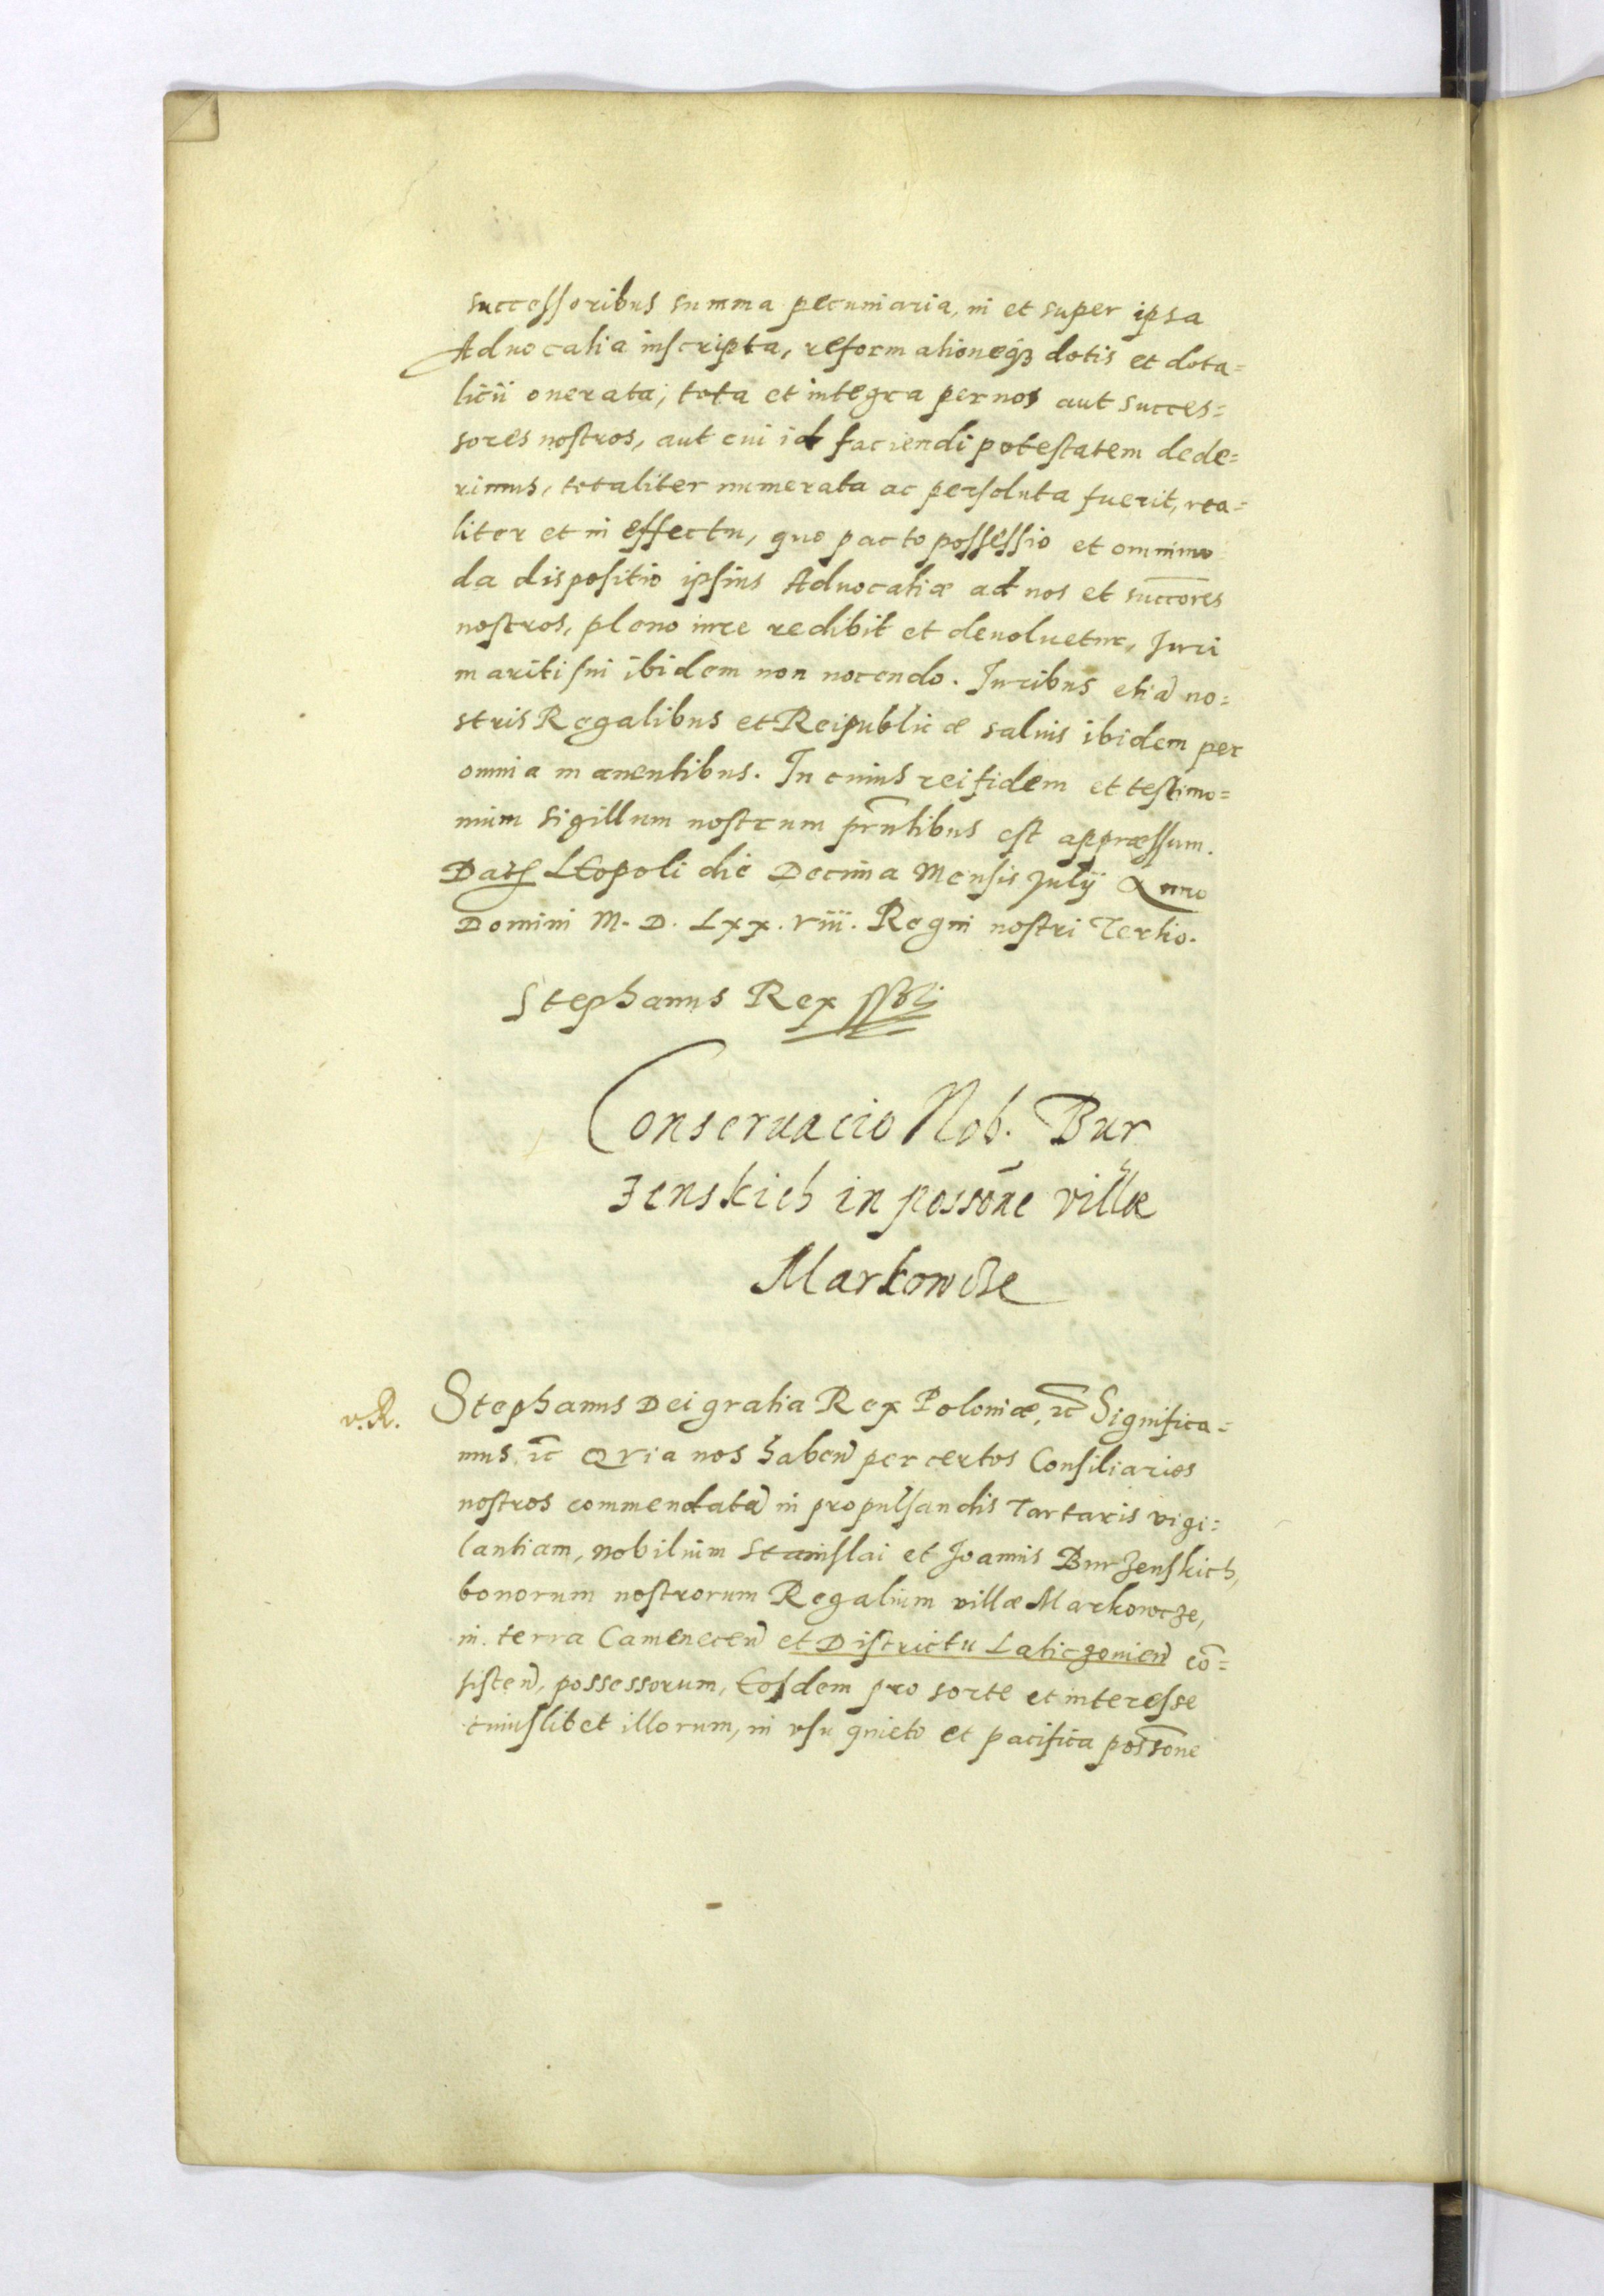 successoribus summa pecuniaria, in et super ipsa
Aduocatia inscripta, reformationeq́ȝ dotis et dota=
licii onerata, tota et integra per nos aut succes=
sores nostros, aut cui id faciendi potestatem dede=
rimus, totaliter numerata ac persoluta fuerit, rea=
liter et in effectu, quo pacto possessio et omnimo
da dispositio ipsius Aduocatiæ ad nos et succōres
nostros, pleno iure redibit et deuoluetur, Juri
mariti sui ibidem non nocendo. Juribus etiā no=
stris Regalibus et Reipublicæ saluis ibidem per
omnia manentibus. In cuius rei fidem et testimo=
nium sigillum nostrum prñtibus est appræssum.
Datę LEopoli die Decima Mensis Julÿ Anno
Domini M. D. Lxx. viii. Regni nostri Tertio.
Stephanus Rex sst
Conseruacio Nob. Bur
zenskich in possōne villæ
Markowcze
v. R.
Stephanus Dei gratia Rex Poloniæ, ꝛc Significa=
mus ꝛc Qvia nos haben̄ per certos Consiliarios
nostros commendatā in propulsandis Tartaris vigi=
lantiam, nobilium Stanislai et Joannis Burzenskich,
bonorum nostrorum Regalium villæ Markowcze,
in terra Camenecen̄ et Districtu Laticzouien̄ cō=
sisten̄, possessorum, Eosdem pro sorte et interesse
cuiuslibet illorum, in vsu quieto et pacifica possōne